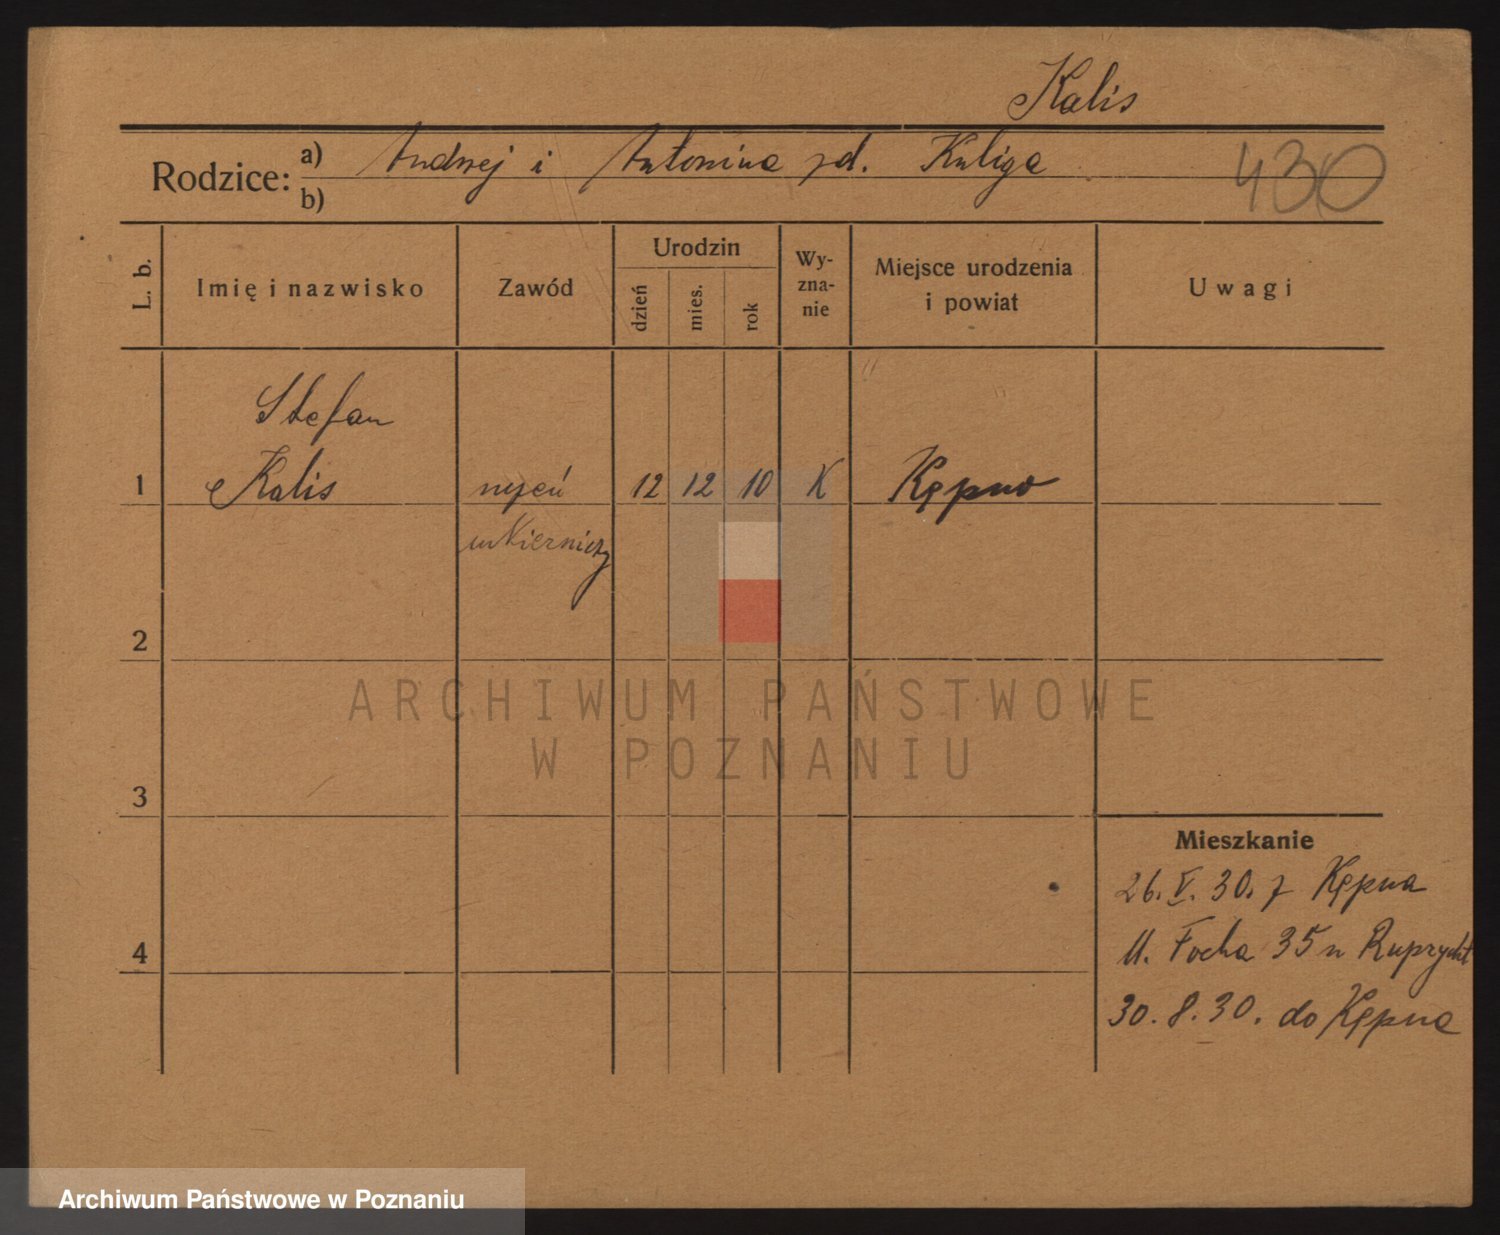 Kalis
Rodzice: a) Andrzej i Antonina zd. Kuliga
b)
430
L. b.
Imię i nazwisko
Zawód
Urodzin
dzień
mies.
rok
Wy-
zna-
nie
Miejsce urodzenia
i powiat
Uwagi
Stefan
1 Kalis uczeń 12 12 10 K Kępno
cukierniczy
2
ARCHIWUM PAŃSTWOWE
W POZNANIU
3
Mieszkanie
26. V. 30. z Kępna
4 Ul. Focha 35 u Ruprycht
30. 8. 30. do Kępna
Archiwum Państwowe w Poznaniu